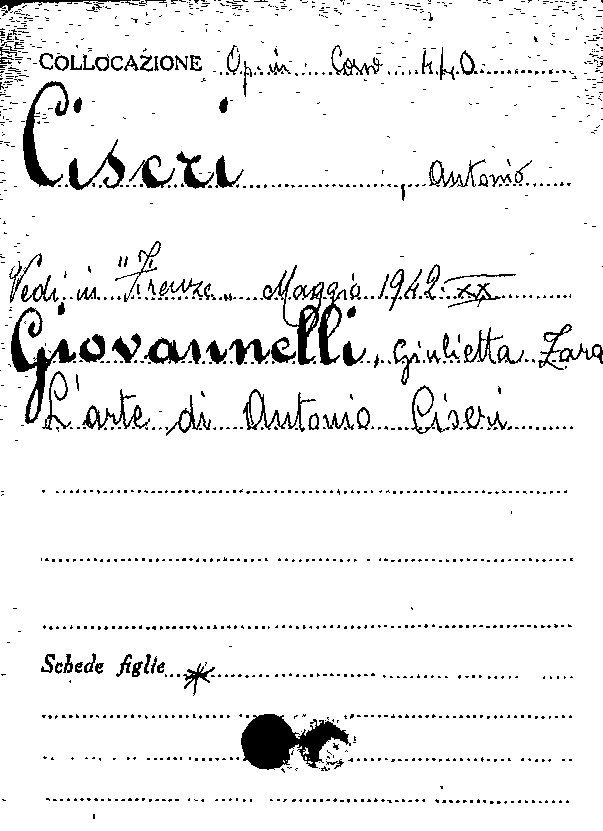 COLLOCAZIONE Op. in Corso 4.L.O.
Ciseri, Antonio
Vedi in "Firenze" Maggio 1942 XX
Giovannelli, Giulietta Zara
L'arte di Antonio Ciseri
Schede figlie *